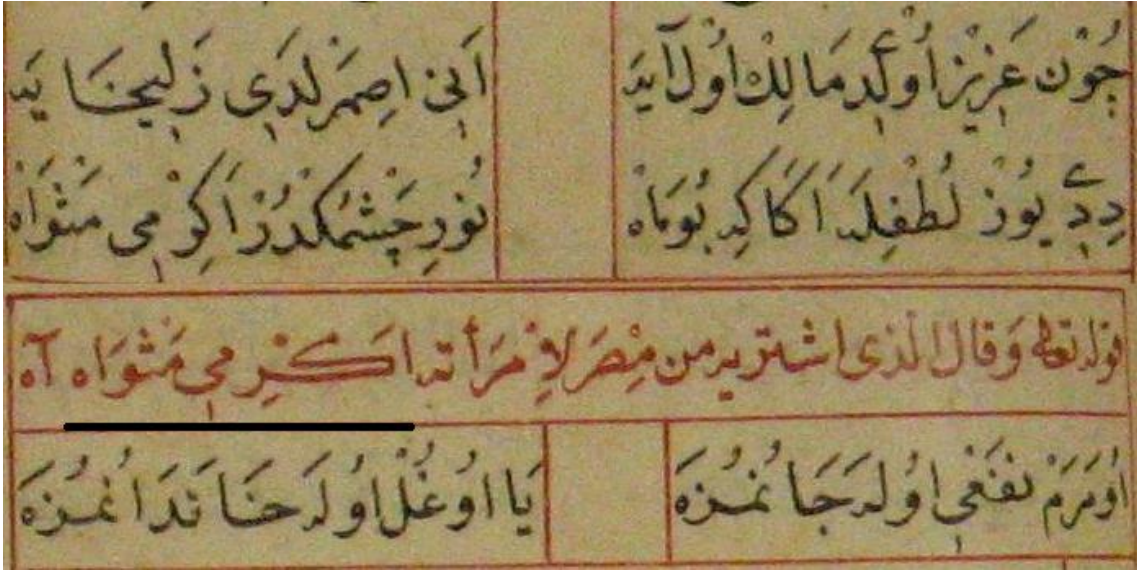 چُوْن عَزِيْز اُولْدِ مَالِكْ اُولْ آيَه اَنِی اِصْمَرْلَدِی زَلِيخَا يَه
دِدِی يُوزْ لُطْفِلَه اَكَا كِه بُو مَاهْ نُورِ چَشْمُكْدُرْ اَكْرِمِی مَثْوَاهْ
قوله تعالى وَقَالَ الَّذى اشتريه من مِصْرَ لِامْرَأته اَكْرِمِی مَثْوَاه آه
اُومَرَمْ نَفْعِی اُولَه جَانُمُزَه يَا اُوغُلْ اُولَه خَانَدَانُمُزَه